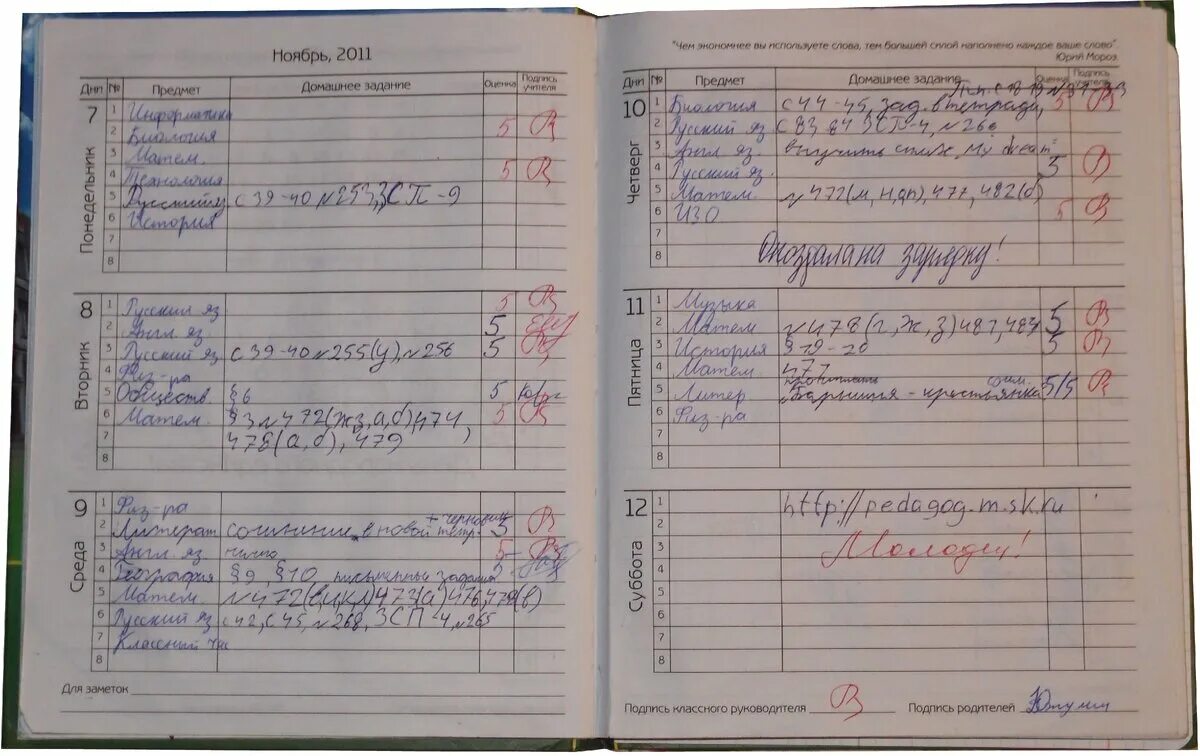 Ноябрь, 2011
Дни № Предмет Домашнее задание Оценка Подпись учителя
7 Понедельник
1 Информатика
2 Биология 5
3 Матем.
4 Технология 5
5 Русский яз с 39-40 №253, ЗСП-9
6 История
7
8
8 Вторник
1 Русский яз. 5
2 Англ яз. 5
3 Русский яз с 39-40 №255(у), №256 5
4 Физ-ра
5 Обществ. §6 5
6 Матем. §3 №472(жз,а,б),474, 5
7 478(а,б), 479
8
9 Среда
1 Физ-ра
+ черновик
2 Литерат сочинение в новой тетр. 5
3 Англ. яз 5-
4 География §9, §10, письменные задания 5
5 Матем. №472(в,и,к,л)473(а)476,479(в)
6 Русский яз с42, с45, №268, ЗСП-4, №265
7 Классный час
8
Для заметок
"Чем экономнее вы используете слова, тем большей силой наполнено каждое ваше слово".
Юрий Мороз
Дни № Предмет Домашнее задание Оценка Подпись учителя
10 Четверг
1 Биология с 44-45, зад. в тетради, 5
2 Русский яз с 83 84 ЗСП-4, №266
3 Англ яз. выучить стих „My dream"
4 Русский яз. 5
5 Матем. №472(м,н,оп), 477, 482(б)
6 ИЗО 5
7
Опоздала на зарядку!
8
11 Пятница
1 Музыка
2 Матем №478(г,ж,з) 487,484 5
3 История §19-20 5
4 Матем 477
прочитать
5 Литер „Барышня - крестьянка" 5/5
6 Физ-ра
7
8
12 Суббота
1 http://pedagog.m.sk.ru
2
3 Молодец!
4
5
6
7
8
Подпись классного руководителя Подпись родителей